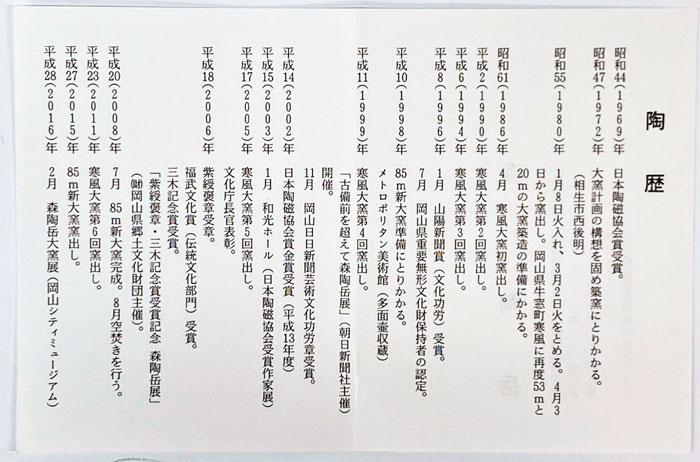 陶歴
昭和44(1969)年　日本陶磁協会賞受賞。
昭和47(1972)年　大窯計画の構想を固め築窯にとりかかる。
(相生市西後明)
昭和55(1980)年　1月8日火入れ、3月2日火をとめる。4月3
日から窯出し。岡山県牛窓町寒風に再度53mと
20mの大窯築造の準備にかかる。
昭和61(1986)年　4月　寒風大窯初窯出し。
平成2(1990)年　寒風大窯第2回窯出し。
平成6(1994)年　寒風大窯第3回窯出し。
平成8(1996)年　1月　山陽新聞賞(文化功労)受賞。
7月　岡山県重要無形文化財保持者の認定。
平成10(1998)年　85m新大窯準備にとりかかる。
メトロポリタン美術館(多面壷収蔵)
平成11(1999)年　寒風大窯第4回窯出し。
「古備前を超えて森陶岳展」(朝日新聞社主催)
開催。
11月　岡山日日新聞芸術文化功労章受賞。
平成14(2002)年　日本陶磁協会賞金賞受賞(平成13年度)
平成15(2003)年　1月　和光ホール(日本陶磁協会受賞作家展)
平成17(2005)年　寒風大窯第5回窯出し。
文化庁長官表彰。
平成18(2006)年　紫綬褒章受章。
福武文化賞(伝統文化部門)受賞。
三木記念賞受賞。
「紫綬褒章・三木記念賞受賞記念 森陶岳展」
(㈶岡山県郷土文化財団主催)。
平成20(2008)年　7月　85m新大窯完成。8月空焚きを行う。
平成23(2011)年　寒風大窯第6回窯出し。
平成27(2015)年　85m新大窯窯出し。
平成28(2016)年　2月　森陶岳大窯展(岡山シティミュージアム)